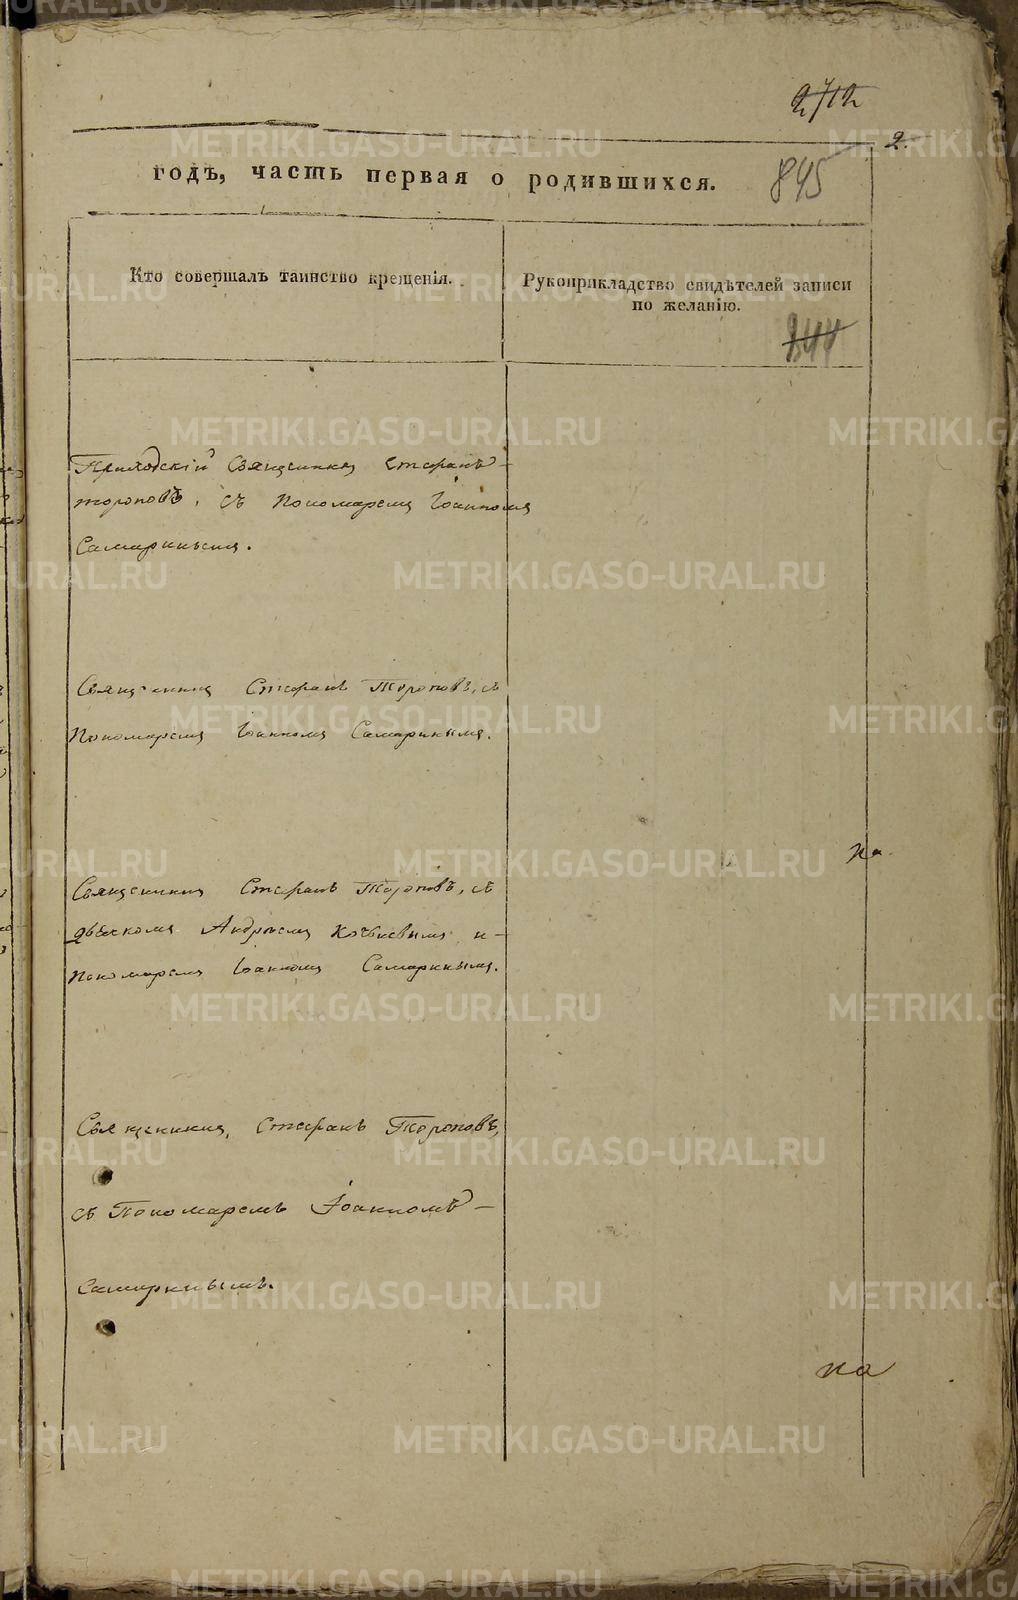 2712
2.
годѣ, часть первая о родившихся.
845
Кто совершалъ таинство крещенія.
Рукоприкладство свидѣтелей записи
по желанію.
844
Приходскій Священникъ Стефанъ
тороповъ, съ Пономаремъ Іоанномъ
Самаринымъ.
Священникъ Стефанъ Тороповъ, съ
Пономаремъ Іоанномъ Самаринымъ.
Священникъ Стефанъ Тороповъ, съ
дьячкомъ Андреемъ и
Пономаремъ Іоанномъ Самаринымъ.
Священникъ, Стефанъ Тороповъ,
съ Пономаремъ Іоанномъ
Самаринымъ.
на
на
METRIKI.GASO-URAL.RU